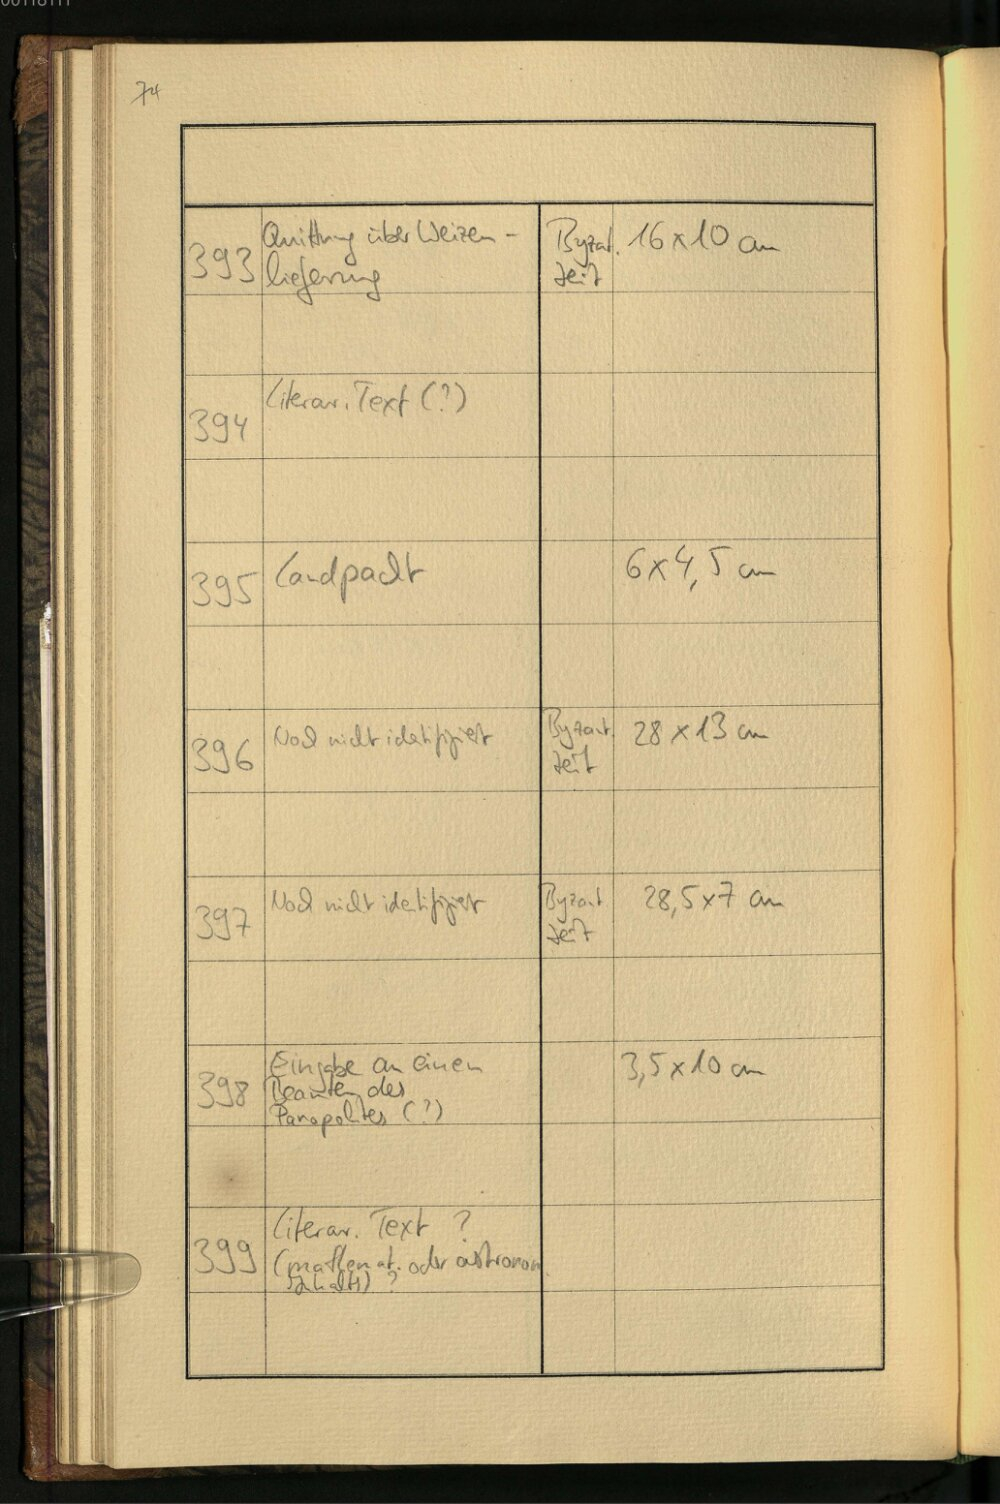 74
393 Quittung über Weizen- Byzant. 16 x 10 cm
lieferung Zeit
394 Literar. Text (?)
395 Landpacht 6 x 4,5 cm
396 Noch nicht identifiziert Byzant. 28 x 13 cm
Zeit
397 Noch nicht identifiziert Byzant 28,5 x 7 cm
Zeit
398 Eingabe an einen 3,5 x 10 cm
Beamten des
Panopolites (?)
399 Literar. Text ?
(mathemat. oder astronom.
Inhalts) ?